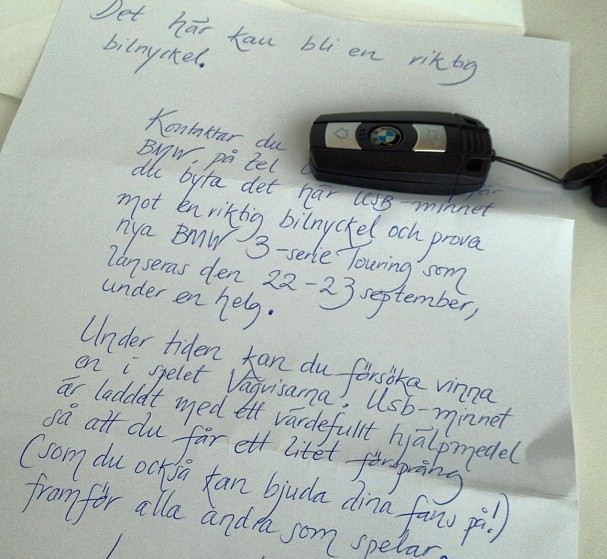 Det här kan bli en riktig
bilnyckel.
Kontaktar du
BMW på tel
du byta det här USB-minnet
mot en riktig bilnyckel och prova
nya BMW 3-serie Touring som
lanseras den 22-23 september,
under en helg.
Under tiden kan du försöka vinna
en i spelet Vägvisarna. Usb-minnet
är laddat med ett värdefullt hjälpmedel
så att du får ett litet försprång
(som du också kan bjuda dina fans på!)
framför alla andra som spelar.